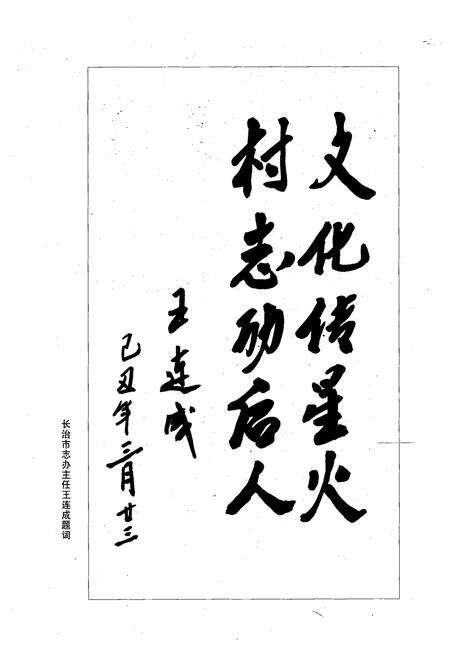 文化传星火
村志励后人
王连成
己丑年三月廿三
长治市志办主任王连成题词